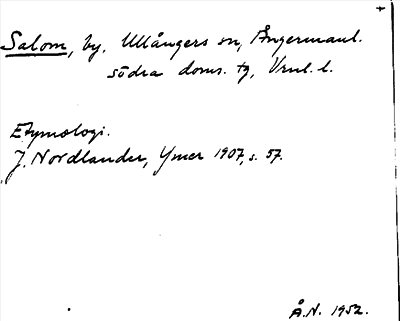 +
Salom, by, Ullångers sn, Ångermanl.
södra doms. tg, Vnl. l.
Etymologi.
J. Nordlander, Ymer 1907, s. 57.
Å.N. 1952.